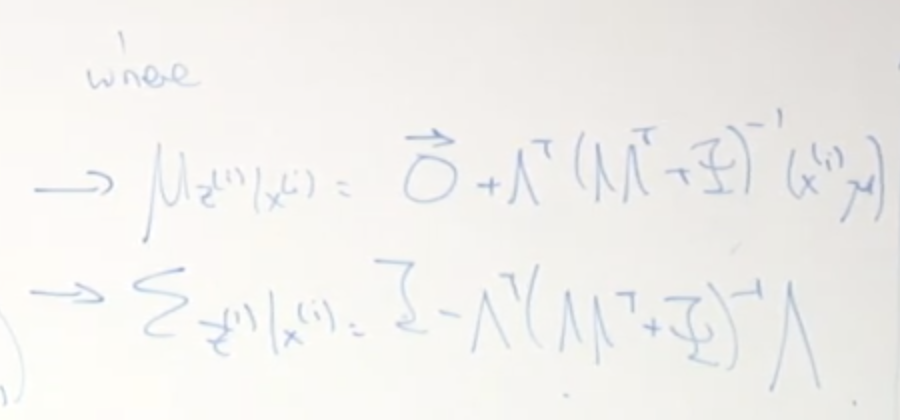 where
→ μ_{z^{(i)}|x^{(i)}} = \vec{0} + Λ^T (ΛΛ^T + Ψ)^{-1} (x^{(i)} μ)
→ Σ_{z^{(i)}|x^{(i)}} = I - Λ^T (ΛΛ^T + Ψ)^{-1} Λ